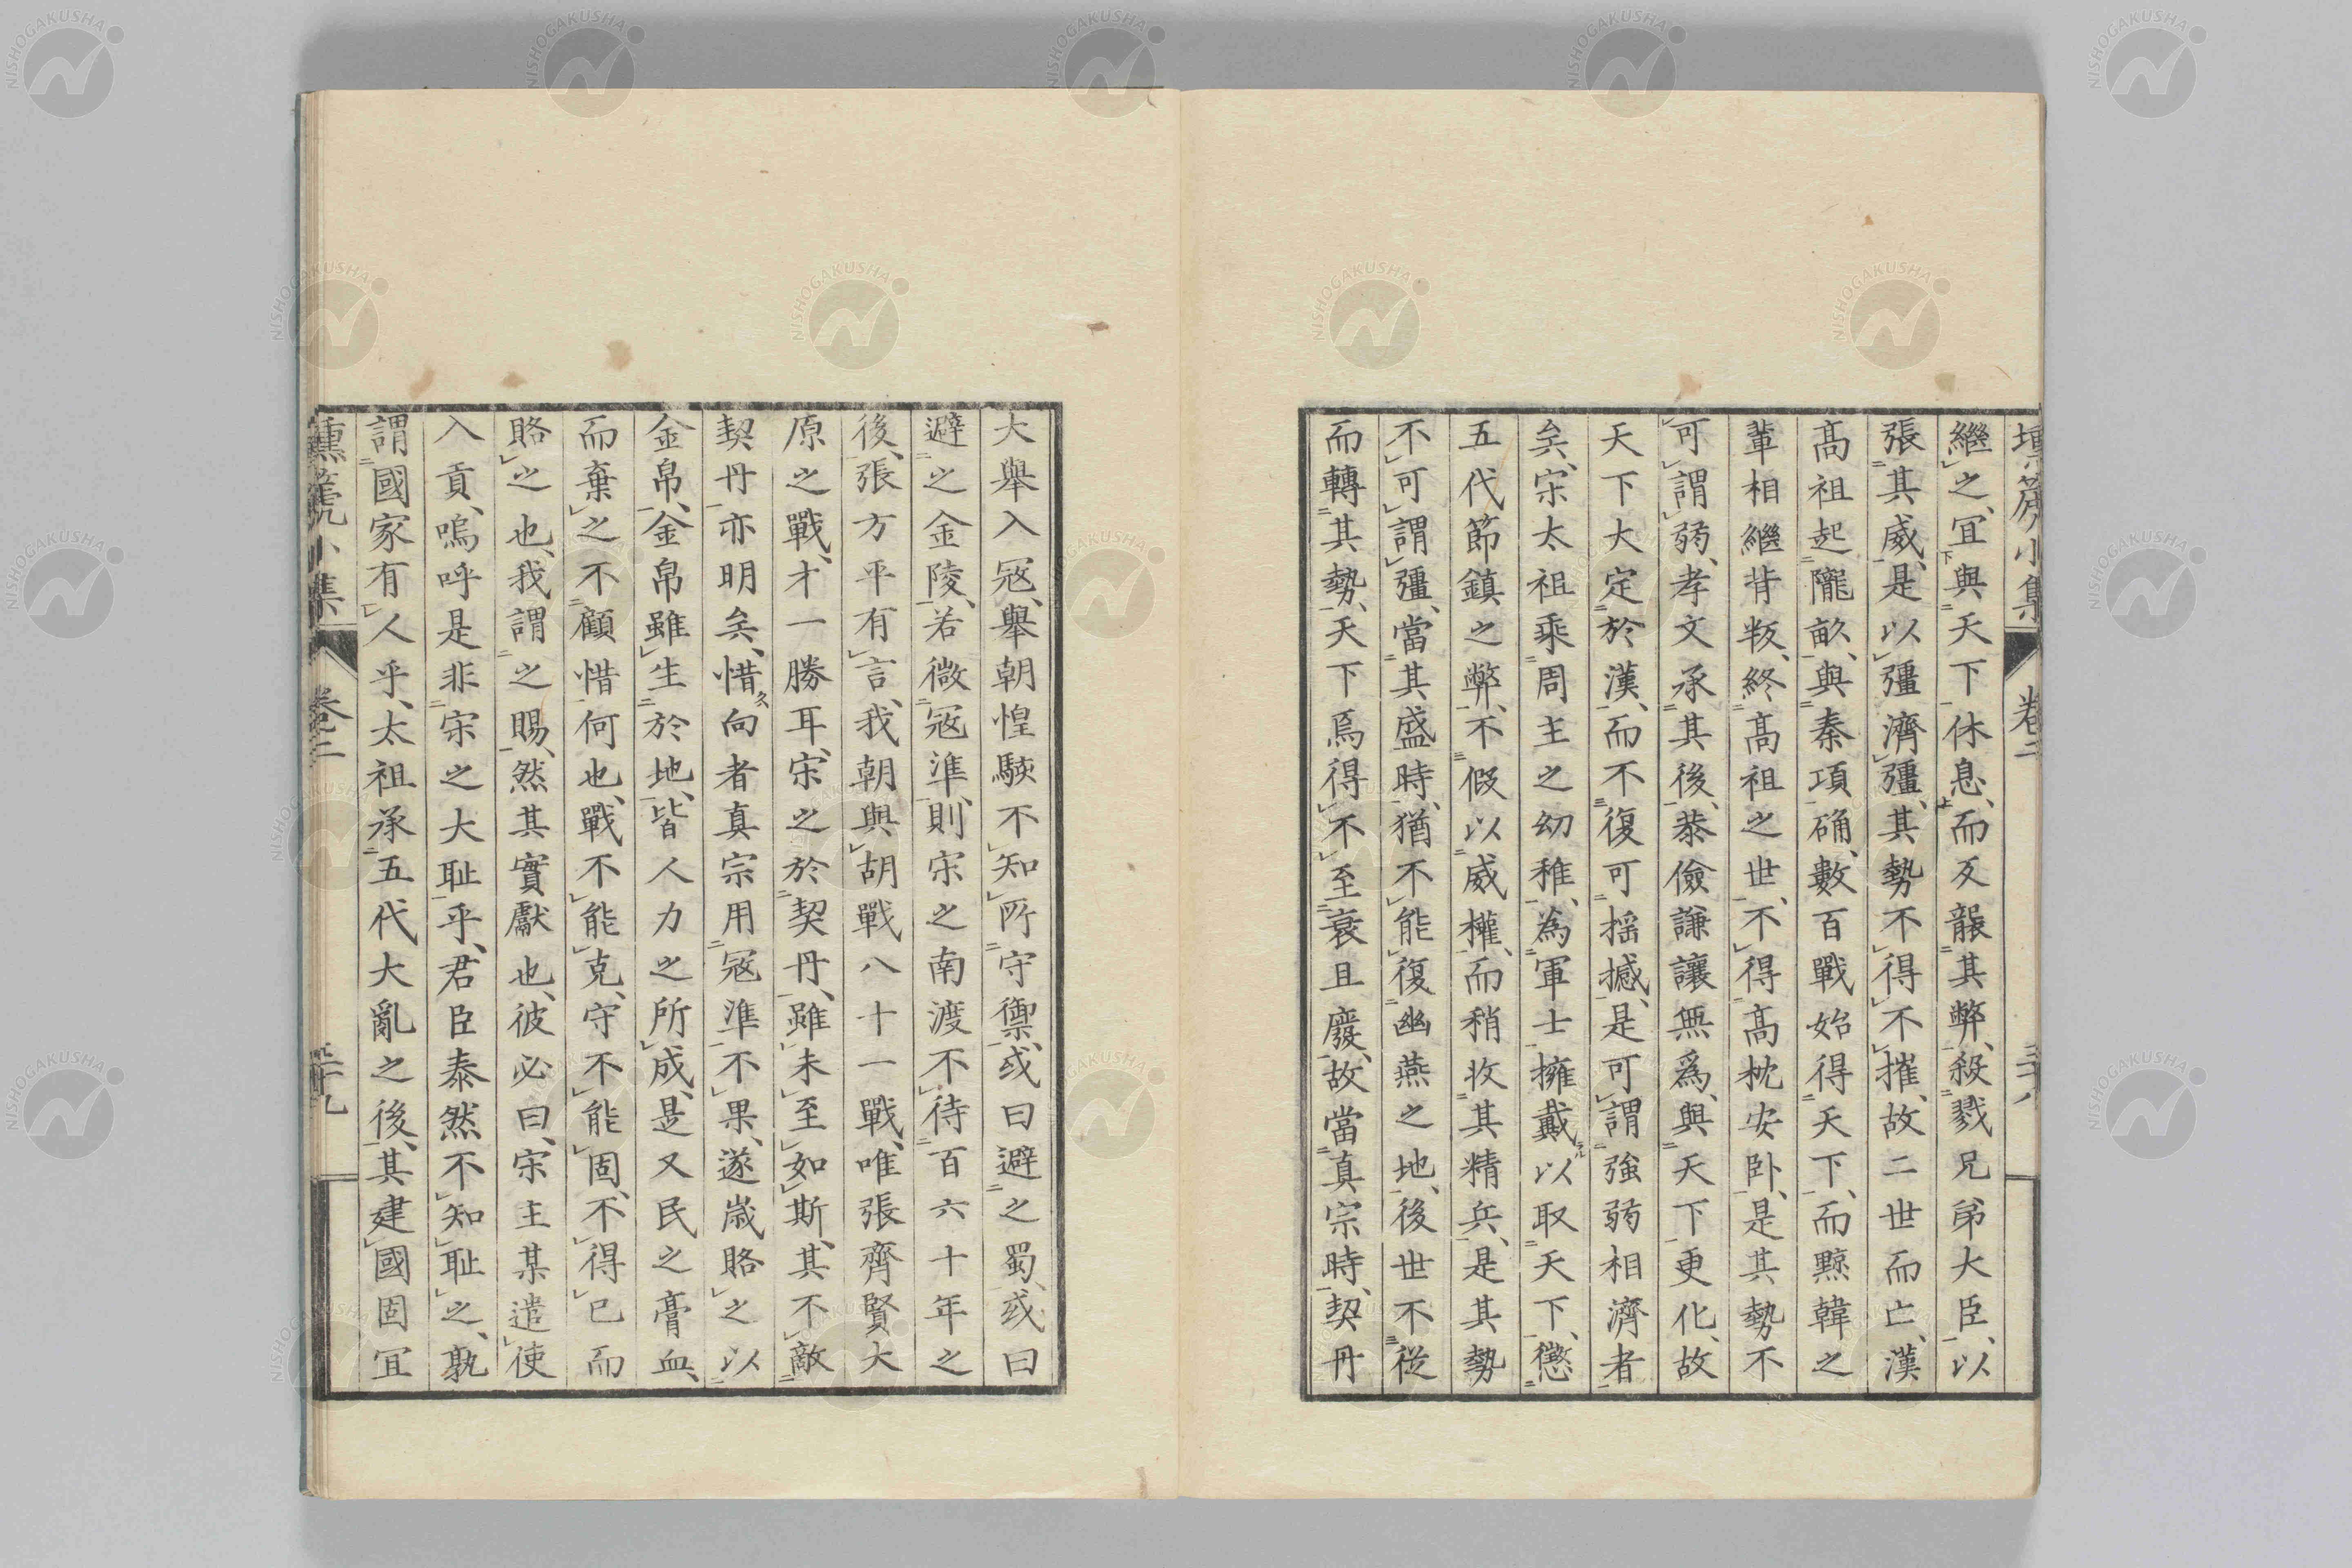 繼之、宜與天下休息、而反襲其弊、殺戮兄弟大臣、以
張其威、是以彊濟彊、其勢不得不摧、故二世而亡、漢
高祖起隴畝、與秦項确、數百戰始得天下、而黥韓之
輩相繼背叛、終高祖之世、不得高枕安臥、是其勢不
可謂弱、孝文承其後、恭儉謙讓無爲、與天下更化、故
天下大定於漢、而不復可搖撼、是可謂強弱相濟者
矣、宋太祖乘周主之幼稚、為軍士擁戴以取天下、懲
五代節鎮之弊、不假以威權、而稍收其精兵、是其勢
不可謂彊、當其盛時、猶不能復幽燕之地、後世不從
而轉其勢、天下焉得不至衰且廢、故當真宗時、契丹
大舉入寇、舉朝惶駭不知所守禦、或曰避之蜀、或曰
避之金陵、若微寇準、則宋之南渡不待百六十年之
後、張方平有言、我朝與胡戰八十一戰、唯張齊賢大
原之戰、才一勝耳、宋之於契丹、雖未至如斯、其不敵
契丹亦明矣、惜向者真宗用寇準不果、遂歳賂之以
金帛、金帛雖生於地、皆人力之所成、是又民之膏血、
而棄之不顧惜何也、戰不能克、守不能固、不得已而
賂之也、我謂之賜、然其實獻也、彼必曰、宋主某遣使
入貢、嗚呼是非宋之大耻乎、君臣泰然不知耻之、孰
謂國家有人乎、太祖承五代大亂之後、其建國固宜
壎篪小集
卷二
三十八
卷二
三十九
NISHOGAKUSHA